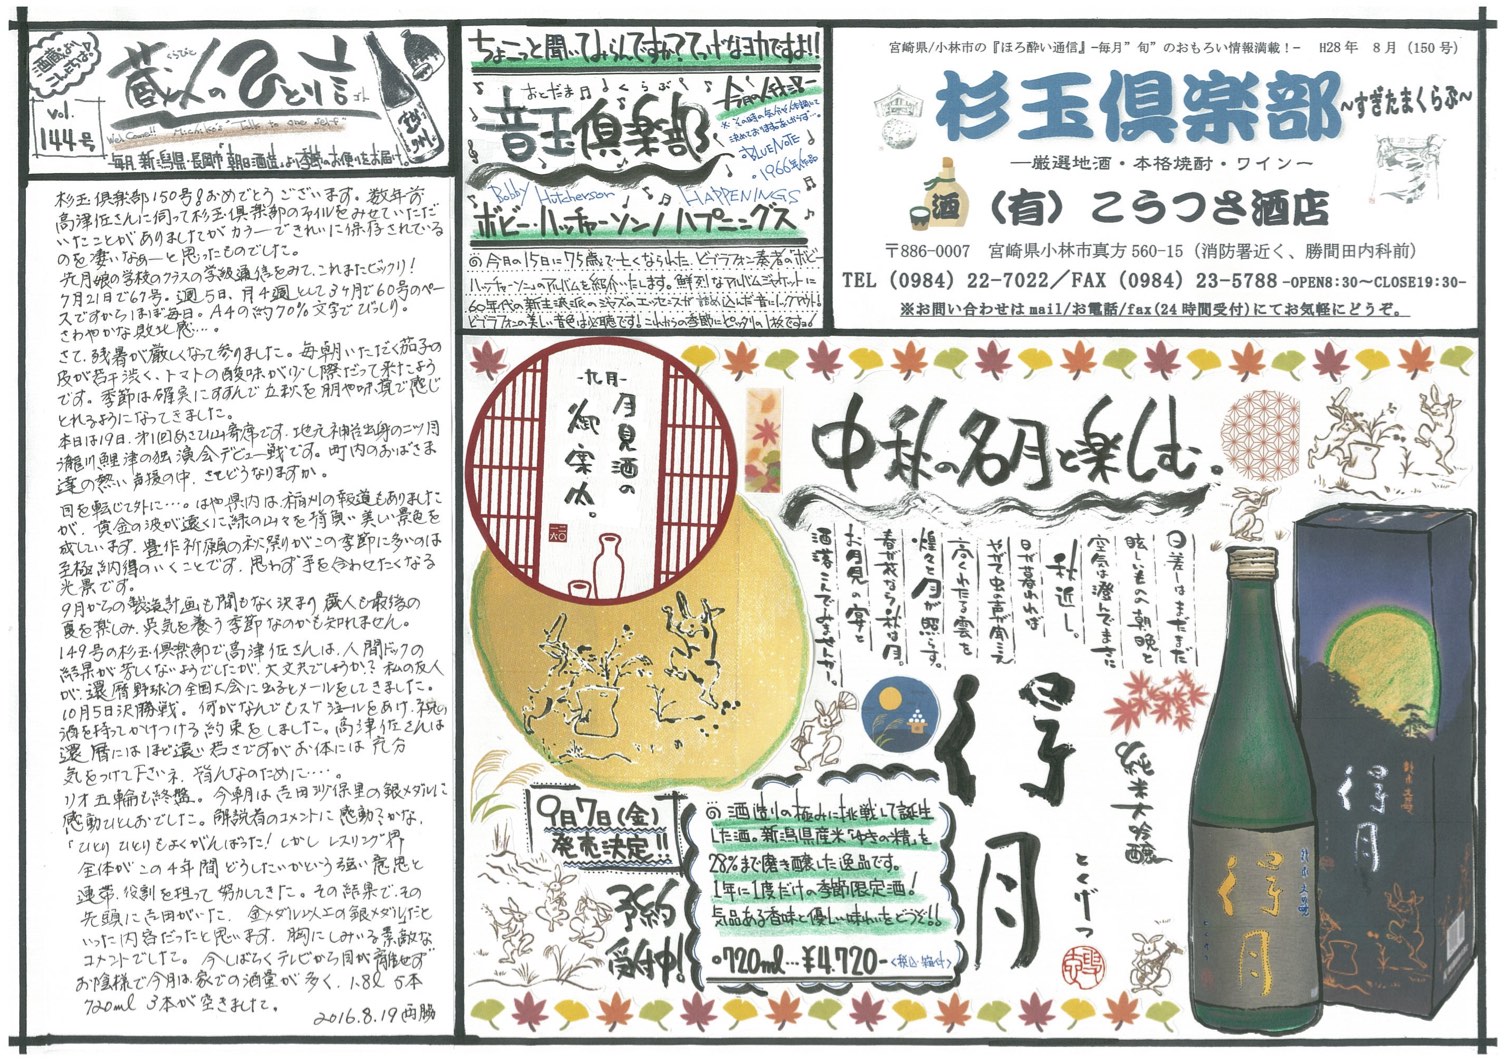 酒蔵より
vol.
144号
蔵人のひとり言
くらびと
ゴト
WelCome!! Michike's "Talk to one self."
毎月、新潟県・長岡市「朝日酒造」より季節のお便りをお届け。
杉玉倶楽部150号!おめでとうございます。数年前
高津佐さんに伺って杉玉倶楽部のファイルをみせていただ
いたことがありましたがカラーできれいに保存されている
のを凄いなぁーと思ったものでした。
先月娘の学校のクラスの学級通信をみて、これまたビックリ!
7月21日で67号。週5日、月4週として3ヶ月で60号のペー
スですからほぼ毎日。A4の約70%文字でびっしり。
さわやかな敗北感…。
さて、残暑が厳しくなって参りました。毎朝いただく茄子の
皮が若干渋く、トマトの酸味が少し際だって来たよう
です。季節は確実にすすんで立秋を肌や味覚で感じ
とれるようになってきました。
本日は19日、第1回あさひ山寄席です。地元神谷出身の二ツ目
瀧川鯉津の独演会デビュー戦です。町内のおばさま
達の熱い声援の中、さてどうなりますか。
目を転じて外に…。はや県内は稲刈の報道もありました
が、黄金の波が遠くに緑の山々を背負い美しい景色を
成しています。豊作祈願の秋祭りがこの季節に多いのは
至極納得のいくことです。思わず手を合わせたくなる
光景です。
9月からの製造計画も間もなく決まり蔵人も最後の
夏を楽しみ、英気を養う季節なのかも知れません。
149号の杉玉倶楽部で高津佐さんは、人間ドックの
結果が芳しくないようでしたが、大丈夫でしょうか?私の友人
が、還暦野球の全国大会に出るとメールをしてきました。
10月5日決勝戦。何がなんでもスケジュールをあけ、祝の
酒を持ってかけつける約束をしました。高津佐さんは
還暦にはほど遠い若さですがお体には充分
気をつけて下さいネ、皆んなのために…。
リオ五輪も終盤。今朝は吉田沙保里の銀メダルに
感動ひとしおでした。解説者のコメントに感動そかな、
「ひとりひとりもよくがんばった!しかしレスリング界
全体がこの4年間どうしたいかという強い意思と
連帯、役割を担って努力してきた。その結果で、その
先頭に吉田がいた。金メダル以上の銀メダルだと
いった内容だったと思います。胸にしみいる素敵な
コメントでした。今しばらくテレビから目が離せず
お陰様で今月は家での酒量が多く、1.8ℓ 5本
720ml 3本が空きました。
2016.8.19 西脇
ちょこっと聞いてみらんですか?てっげなヨカですよ!!
おとだま くらぶ
音玉倶楽部
今月の1枚
BLUE NOTE
1966年作品
Bobby Hutcherson HAPPENINGS
ボビー・ハッチャーソン/ハプニングス
◎今日の15日に75歳で亡くなられた、ビブラフォン奏者の「ボビー・
ハッチャーソン」のアルバムを紹介いたします。鮮烈なアルバムジャケットに
60年代の新主流派のジャズのエッセンスが詰め込んだ音にノックアウト!
ビブラフォンの美しい音色は必聴です!これからの季節にピッタリの1枚ですョ!
宮崎県/小林市の『ほろ酔い通信』-毎月"旬"のおもろい情報満載!- H28年 8月(150号)
杉玉倶楽部 ~すぎたまくらぶ~
―厳選地酒・本格焼酎・ワイン―
酒
(有)こうつさ酒店
〒886-0007 宮崎県小林市真方560-15(消防署近く、勝間田内科前)
TEL(0984)22-7022/FAX(0984)23-5788 -OPEN8:30~CLOSE19:30-
※お問い合わせはmail/お電話/fax(24時間受付)にてお気軽にどうぞ。
-九月-
月見酒の
御案内。
中秋の名月と楽しむ。
日差しはまだまだ
眩しいものの朝晩と
空気は澄んでまさに
秋近し。
日が暮れれば
やがて虫の声が聞こえ
高くわたる雲を
煌々と月が照らす。
春が花なら秋は月。
お月見の宴と
洒落こんでみませんか。
得月
純米大吟醸
とくげつ
9月7日(金)
発売決定!!
予約
受付中!
◎酒造りの極みに挑戦して誕生
した酒。新潟県産米「ゆきの精」を
28%まで磨き醸した逸品です。
1年に1度だけの季節限定酒!
気品ある香味と優しい味わいをどうぞ!!
◦720ml…¥4,720-<税込・箱付>
得月
得月